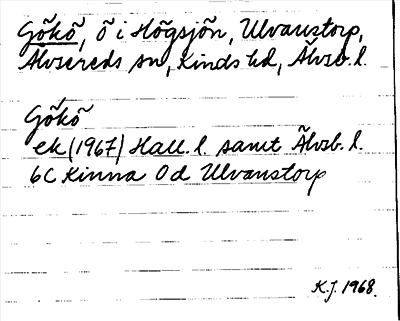 Gökö, ö i Högsjön, Ulvanstorp,
Älvsereds sn, Kinds hd, Älvsb. l.
Gökö
ek (1967) Hall. l. samt Älvsb. l.
6C Kinna 0d Ulvanstorp
K.J. 1968.